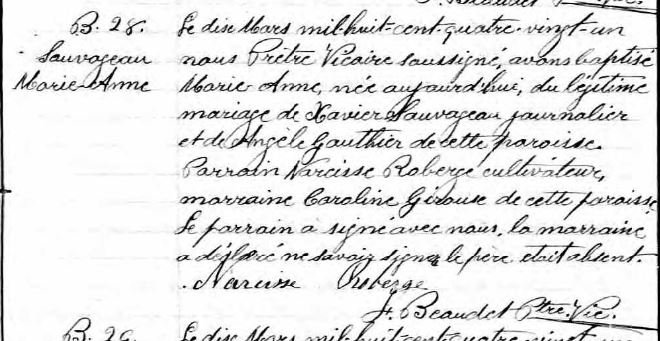 F. Beaudet Ptre. Vic.
B. 28. Le dix Mars mil-huit-cent-quatre-vingt-un
Sauvageau nous Prêtre Vicaire soussigné, avons baptisé
Marie-Anne Marie-Anne, née aujourd'hui, du légitime
mariage de Xavier Sauvageau journalier
et de Angèle Gauthier de cette paroisse.
Parrain Narcisse Roberge cultivateur,
marraine Caroline Girouse de cette paroisse
Le parrain a signé avec nous, la marraine
a déclaré ne savoir signer le père était absent.
Narcisse Roberge
F. Beaudet Ptre. Vic.
B. 29. Le dix Mars mil-huit-cent-quatre-vingt-un